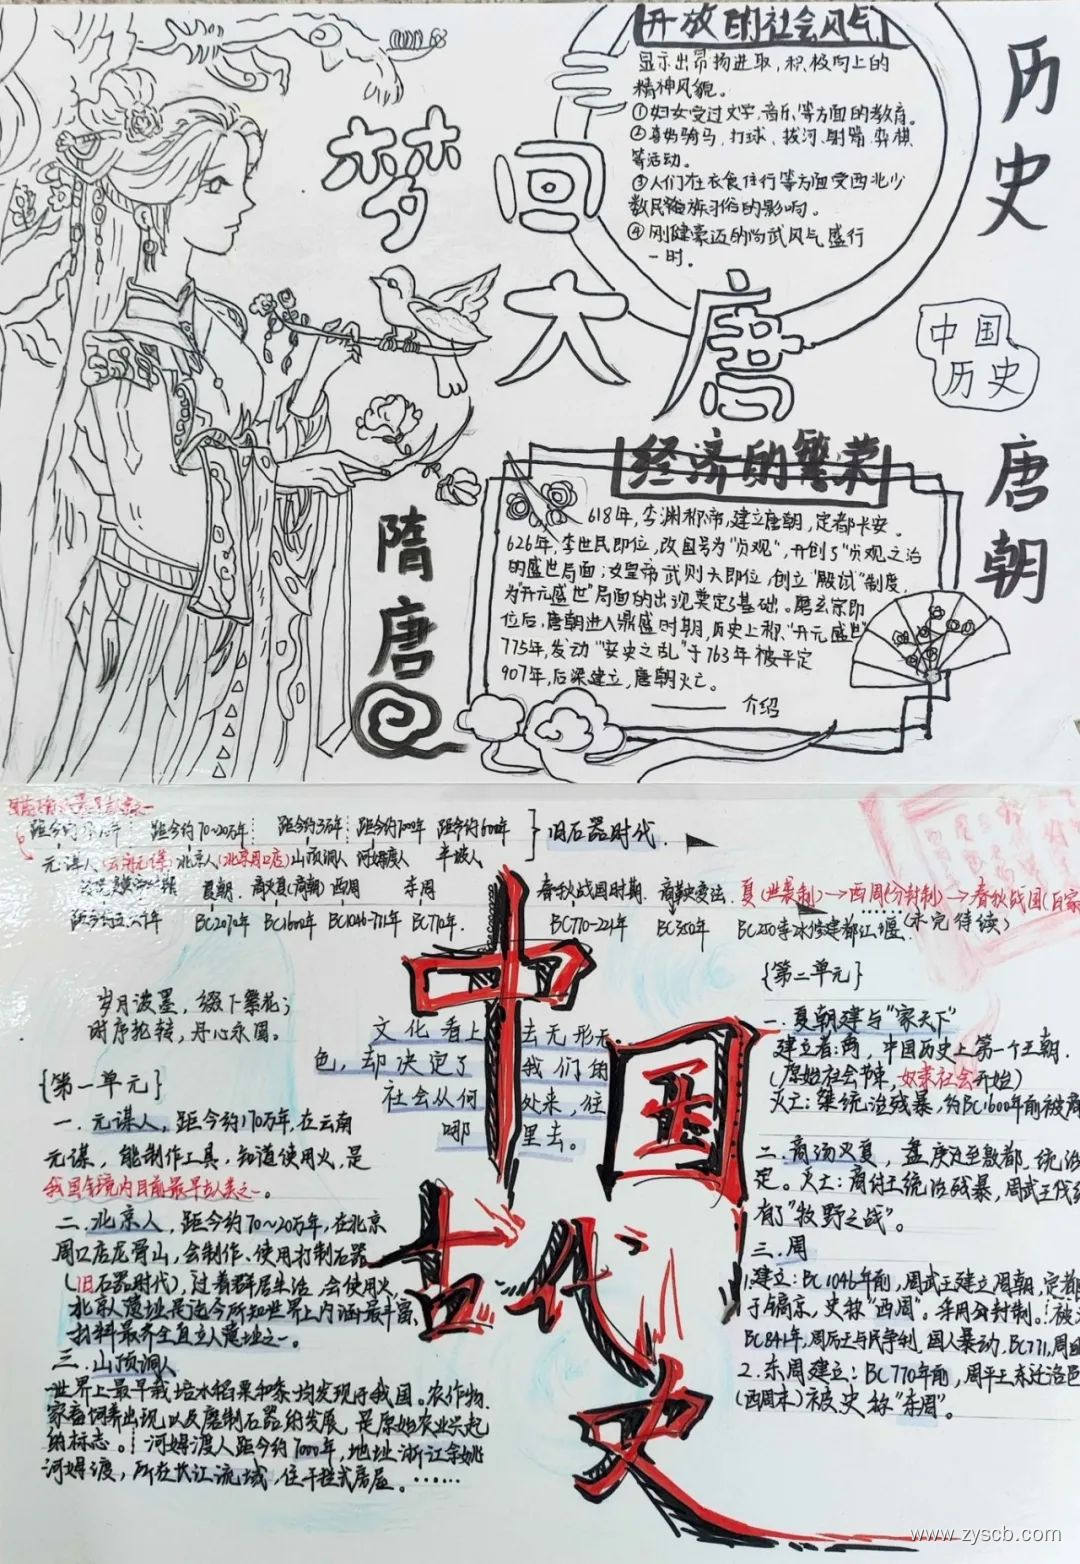 开放的社会风气
显示出昂扬进取,积极向上的
精神风貌。
①妇女受过文字,音乐,等方面的教育。
②喜好骑马,打球、拔河,射箭,弈棋
等活动。
③人们在衣食住行等方面受西北少
数民族习俗的影响。
④刚健豪迈的尚武风气盛行
一时。
历史
梦回大唐
中国
历史
唐朝
隋唐
经济的繁荣
618年,李渊称帝,建立唐朝,定都长安。
626年,李世民即位,改国号为"贞观",开创了"贞观之治
的盛世局面;女皇帝武则天即位,创立"殿试"制度,
为"开元盛世"局面的出现奠定了基础。唐玄宗即
位后,唐朝进入鼎盛时期,历史上称"开元盛世"
775年,发动"安史之乱"于763年被平定
907年,后梁建立,唐朝灭亡。
—— 介绍
距今约70~20万年 距今约3万年 距今约7000年 距今约6000年
旧石器时代
元谋人(云南元谋) 北京人(北京周口店) 山顶洞人 河姆渡人 半坡人
夏朝 商灭夏(商朝) 西周 东周 春秋战国时期 商鞅变法
夏(世袭制)→西周(分封制)→春秋战国(百家
BC2070年 BC1600年 BC1046-771年 BC770年. BC770-221年 BC350年 BC250李冰修建都江堰
……(未完待续)
中国古代史
岁月泼墨,缀下繁花;
时序轮转,丹心永固。
文化看上去无形无
色,却决定了我们的
社会从何处来,往
哪里去。
{第一单元}
一.元谋人,距今约170万年,在云南
元谋,能制作工具,知道使用火,是
我国境内目前最早古人类之一。
二.北京人,距今约70~20万年,在北京
周口店龙骨山,会制作、使用打制石器
(旧石器时代),过着群居生活,会使用火,
北京人遗址是迄今所知世界上内涵最丰富,
材料最齐全直立人遗址之一。
三.山顶洞人
世界上最早栽培水稻粟和黍均发现于我国。农作物,
家畜饲养出现以及磨制石器的发展,是原始农业兴起
的标志。河姆渡人距今约7000年,地址浙江余姚
河姆渡,所在长江流域,住干栏式房屋。……
{第二单元}
一.夏朝建与"家天下"
建立者:禹,中国历史上第一个王朝.
(原始社会结束,奴隶社会开始)
灭亡:桀统治残暴,约BC1600年前被商
二.商汤灭夏,盘庚迁至殷都,统治
定。灭亡:商纣王统治残暴,周武王伐纣
有了"牧野之战"。
三.周
1.建立:BC1046年前,周武王建立周朝,定都
于镐京,史称"西周"。采用分封制。
BC841年,周厉王与民争利,国人暴动,BC771,周
2.东周建立:BC770年前,周平王东迁洛邑
(西周末)被史称"东周"。
www.zyscb.com